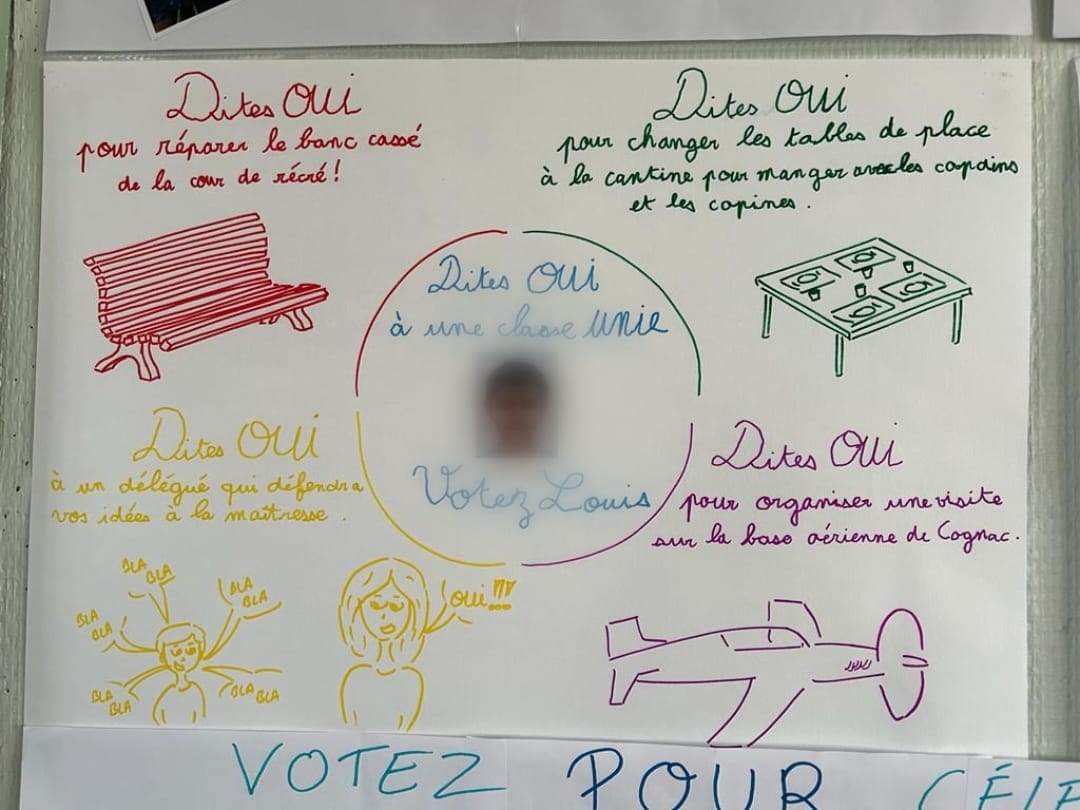 Dites OUI
pour réparer le banc cassé
de la cour de récré !
Dites OUI
pour changer les tables de place
à la cantine pour manger avec les copains
et les copines .
Dites OUI
à une classe UNIE
Votez Louis
Dites OUI
à un délégué qui défendra
vos idées à la maîtresse .
BLA
BLA
BLA
BLA
BLA
BLA
BLA
BLA
BLA
BLA
oui !!!
Dites OUI
pour organiser une visite
sur la base aérienne de Cognac.
VOTEZ POUR